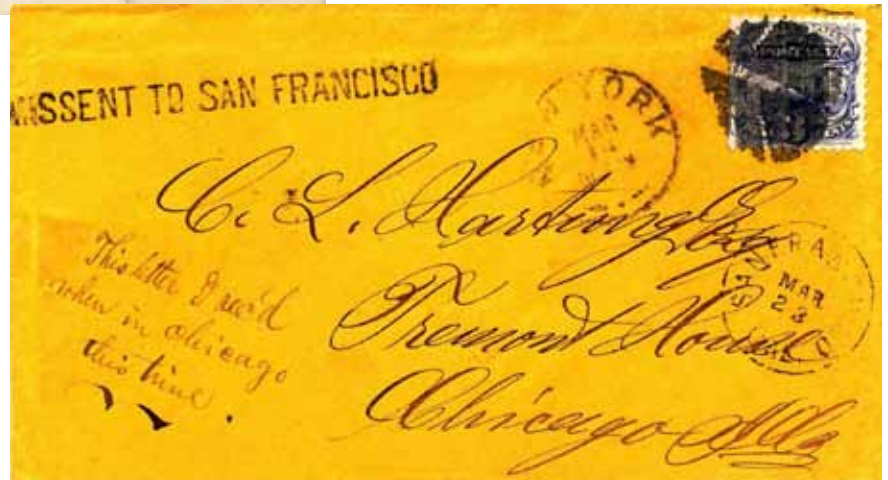 MISSENT TO SAN FRANCISCO
YORK
MAR
C. L. Hartung Esq
Tremont House
Chicago Ills
This letter I rec'd
when in chicago
this time
SAN FRAN
MAR
23